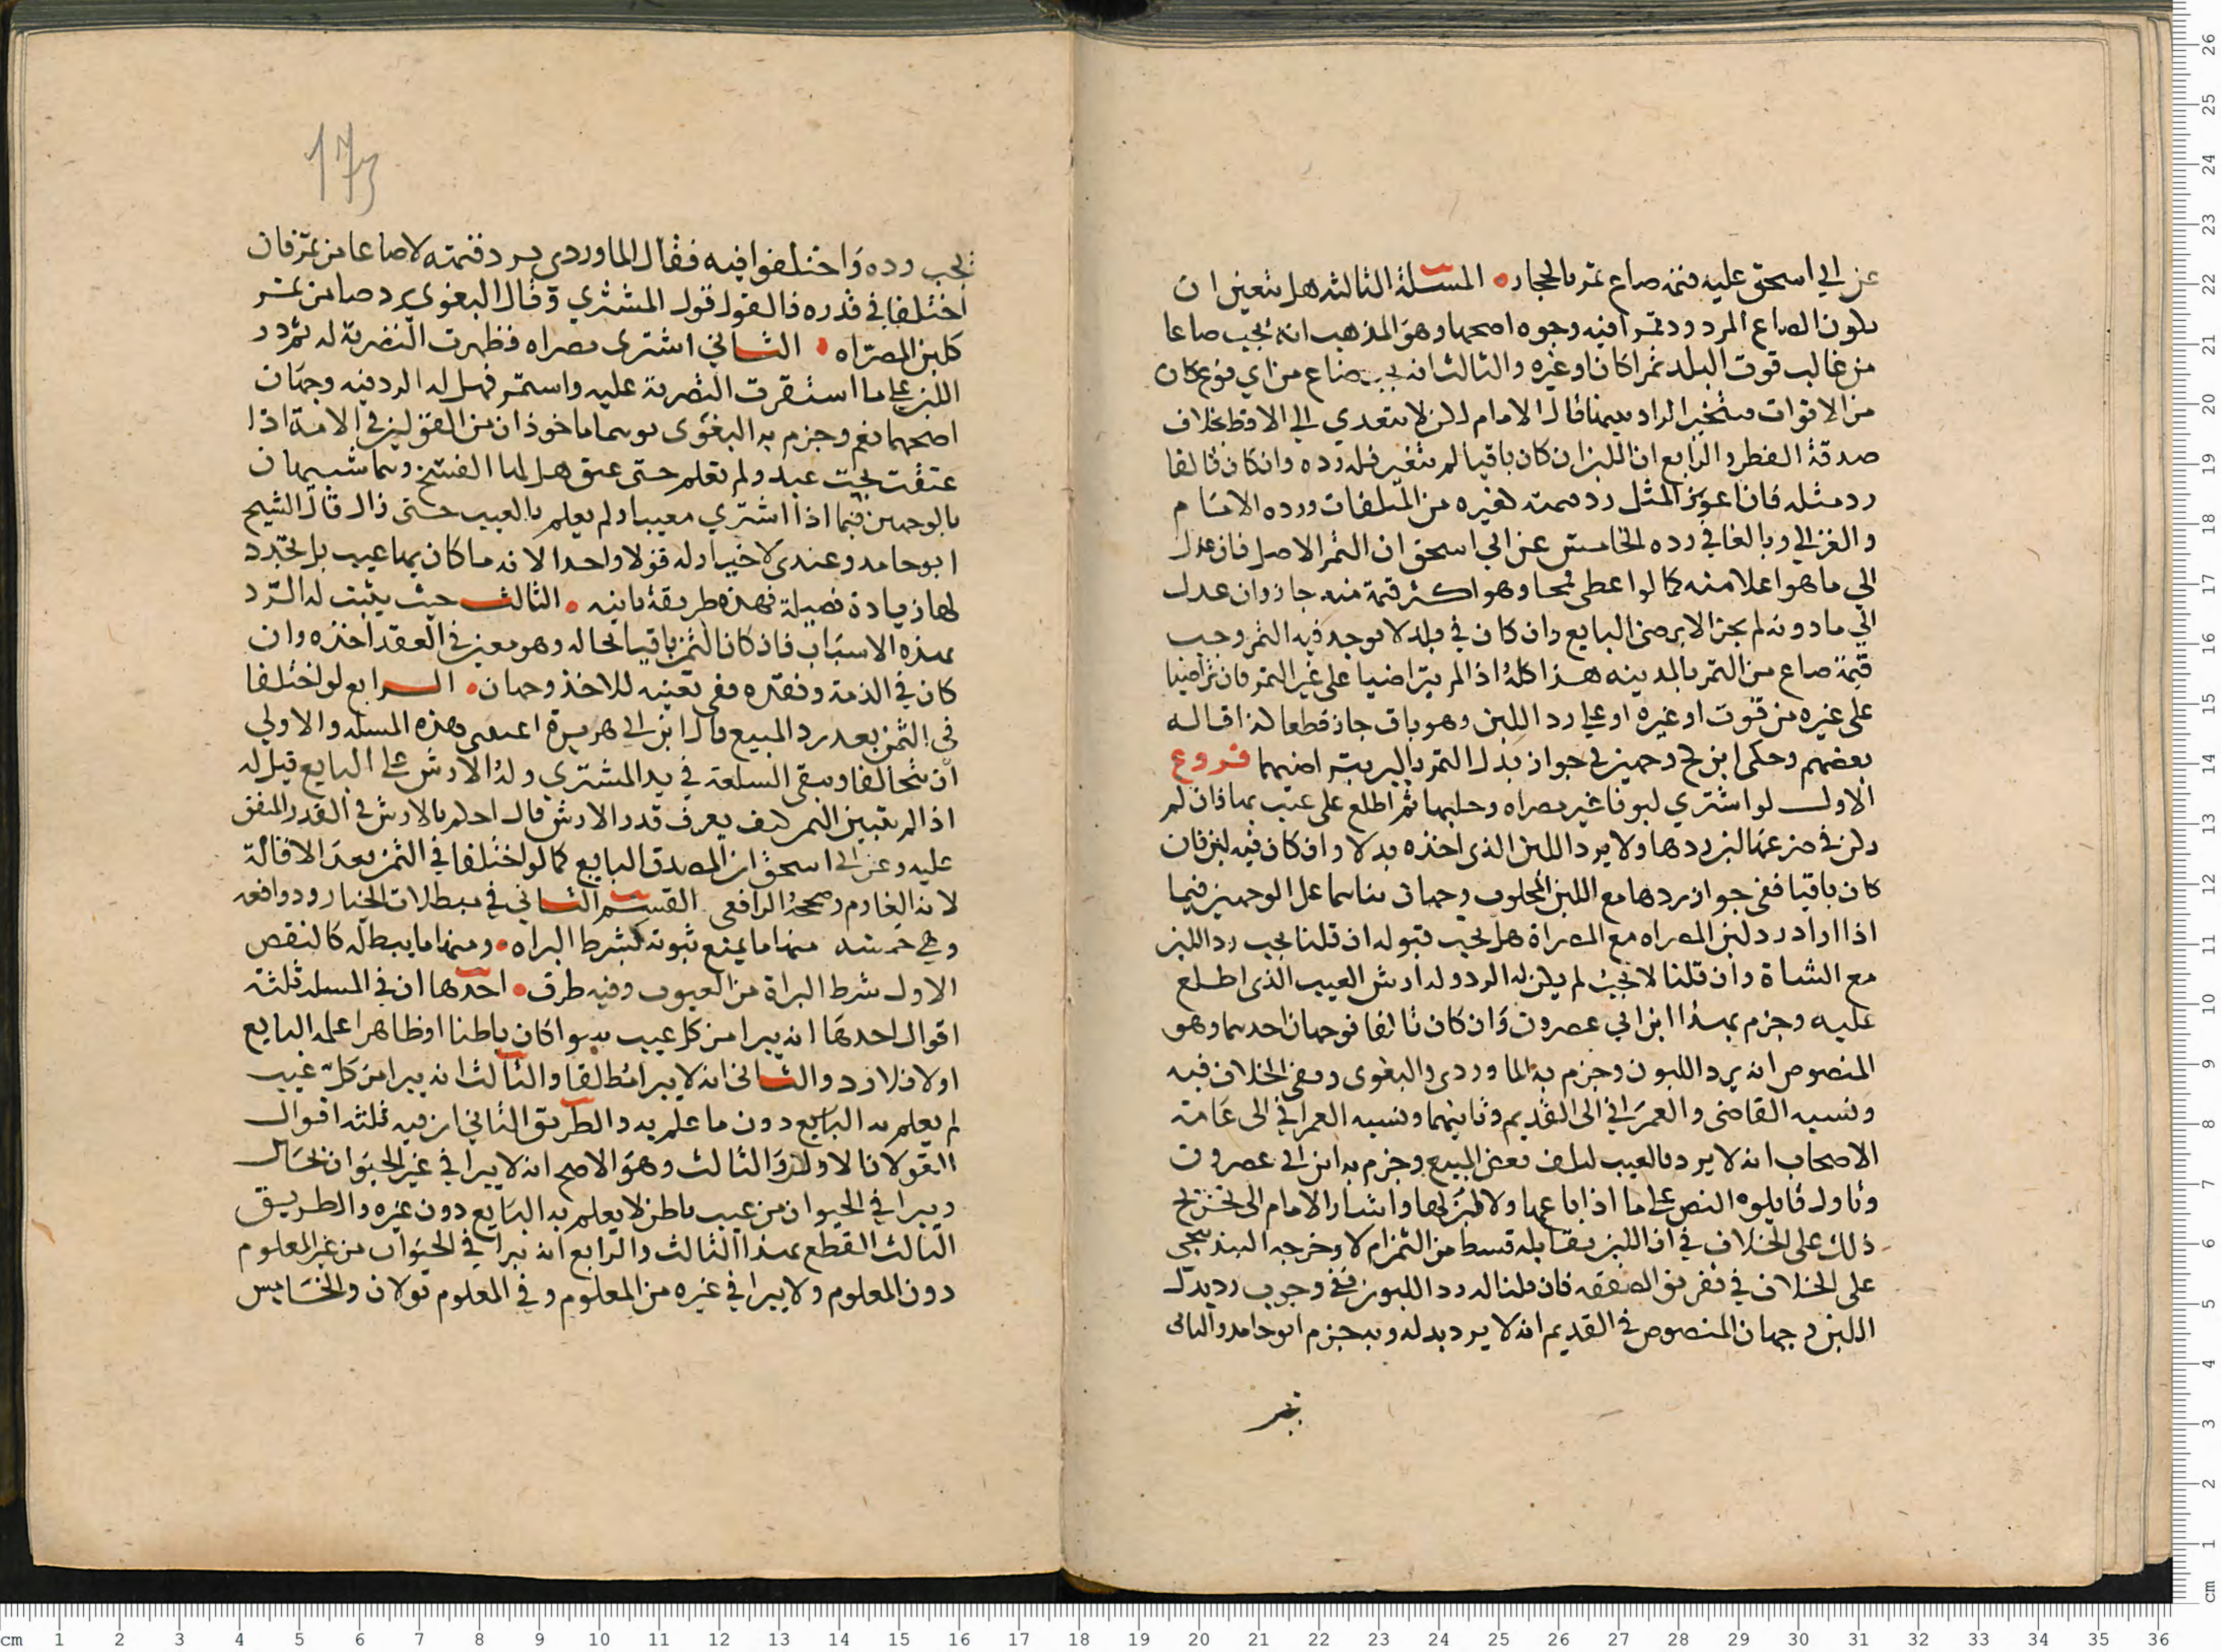 عن ابي اسحق عليه قيمة صاع تمر بالحجاز المسلة الثالثه هل يتعين ان
يكون الصاع المردود تمرا فيه وجوه اصحها وهو المذهب انه يجب صاعا
من غالب قوت البلد تمرا كان او غيره والثالث انه يجب صاع من اي نوع كان
من الاقوات يتخير الراد بينها قال الامام لكن لا يتعدي الي الاقط بخلاف
صدقة الفطر والرابع ان اللبن ان كان باقيا لم يتغير فله رده وان كان تالفا
رد مثله فان اعوز المثل رد قيمته كغيره من المتلفات ورده الامام
والغزالي وبالغا في رده الخامس عن ابي اسحق ان التمر الاصل فان عدل
الي ما هو اعلا منه كما لو اعطي قمحا وهو اكثر قيمة منه جاز وان عدل
الي ما دونه لم يجز الا برضي البايع وان كان في بلد لا يوجد فيه التمر وجب
قيمة صاع من التمر بالمدينه هذا كله اذا لم يتراضيا علي غير التمر فان تراضيا
علي غيره من قوت او غيره او علي رد اللبن وهو باق جاز قطعا كذا قاله
بعضهم وحكي ابن كج وجهين في جواز بدل التمر بالبر بتراضيهما فروع
الاول لو اشتري لبونا غير مصراه وحلبها ثم اطلع علي عيب بها فان لم
يكن في ضرعها لبن ردها ولا يرد اللبن الذي اخذه بدلا وان كان فيه لبن فان
كان باقيا ففي جواز ردها مع اللبن المحلوب وجهان بناهما علي الوجهين فيما
اذا اراد رد لبن المصراه مع المصراة هل يجب قبوله ان قلنا يجب رد اللبن
مع الشاة وان قلنا لا يجب لم يكن له الرد وله ارش العيب الذي اطلع
عليه وجزم بهذا ابن ابي عصرون وان كان تالفا فوجهان احدهما وهو
المنصوص انه يرد اللبون وجزم به الماوردي والبغوي ونفي الخلاف فيه
ونسبه القاضي والعمراني الي القديم وثانيهما ونسبه العمراني الي عامة
الاصحاب انه لا يرد بالعيب لتلف بعض المبيع وجزم به ابن ابي عصرون
وتاول قايلوه النص علي ما اذا باعها ولا لبن لها واشار الامام الي تخريج
ذلك علي الخلاف في ان اللبن يقابله قسط من الثمن ام لا وخرجه البندنيجي
علي الخلاف في تفريق الصفقه فان قلنا له رد اللبون ففي وجوب رد بدل
اللبن وجهان المنصوص في القديم انه لا يرد بدله وبه جزم ابو حامد والثاني
يجب
173
يجب رده واختلفوا فيه فقال الماوردي يرد قيمته لا صاعا من تمر فان
اختلفا في قدره فالقول قول المشتري وقال البغوي يرد صاعا من تمر
كلبن المصراه الثاني اشتري مصراه فظهرت التصرية له ثم در
اللبن علي ما استقرت التصرية عليه واستمر فهل له الرد فيه وجهان
اصحهما نعم وجزم به البغوي وهما ماخوذان من القولين في الامة اذا
عتقت تحت عبد ولم تعلم حتي عتق هل لها الفسخ وهما شبيهان
بالوجهين فيما اذا اشتري معيبا ولم يعلم بالعيب حتي زال قال الشيخ
ابو حامد وعندي لا خيار له قولا واحدا لانه ما كان بها عيب بل تجدد
لها زيادة فضيلة فهذه طريقة ثانيه الثالث حيث يثبت له الرد
بهذه الاسباب فاذ كان الثمن باقيا بحاله وهو معين في العقد اخذه وان
كان في الذمة ونقده ففي تعينه للاخذ وجهان الرابع لو اختلفا
في الثمن بعد رد المبيع قال ابن ابي هريرة اعيتني هذه المسله والاولي
ان يتحالفا وتبقي السلعة في يد المشتري وله الارش علي البايع قيل له
اذا لم يتبين الثمن كيف يعرف قدر الارش قال احكم بالارش في القدر المتفق
عليه وعن ابي اسحق ان المصدق البايع كما لو اختلفا في الثمن بعد الاقالة
لانه الغارم وصححه الرافعي القسم الثاني في مبطلات الخيار ودوافعه
وهي خمسه منها ما يمنع ثبوته كشرط البراه ومنها ما يبطله كالنقص
الاول شرط البراة من العيوب وفيه طرق احدها ان في المسله ثلثة
اقوال احدها انه يبرا من كل عيب به سوا كان باطنا او ظاهرا علمه البايع
اولا فلا رد والثاني انه لا يبرا مطلقا والثالث انه يبرا من كل عيب
لم يعلم به البايع دون ما علم به والطريق الثاني ان فيه ثلثه اقوال
القولان الاولان والثالث وهو الاصح انه لا يبرا في غير الحيوان بحال
ويبرا في الحيوان من عيب باطن لا يعلم به البايع دون غيره والطريق
الثالث القطع بهذا الثالث والرابع انه يبرا في الحيوان من غير المعلوم
دون المعلوم ولا يبرا في غيره من المعلوم وفي المعلوم قولان والخامس